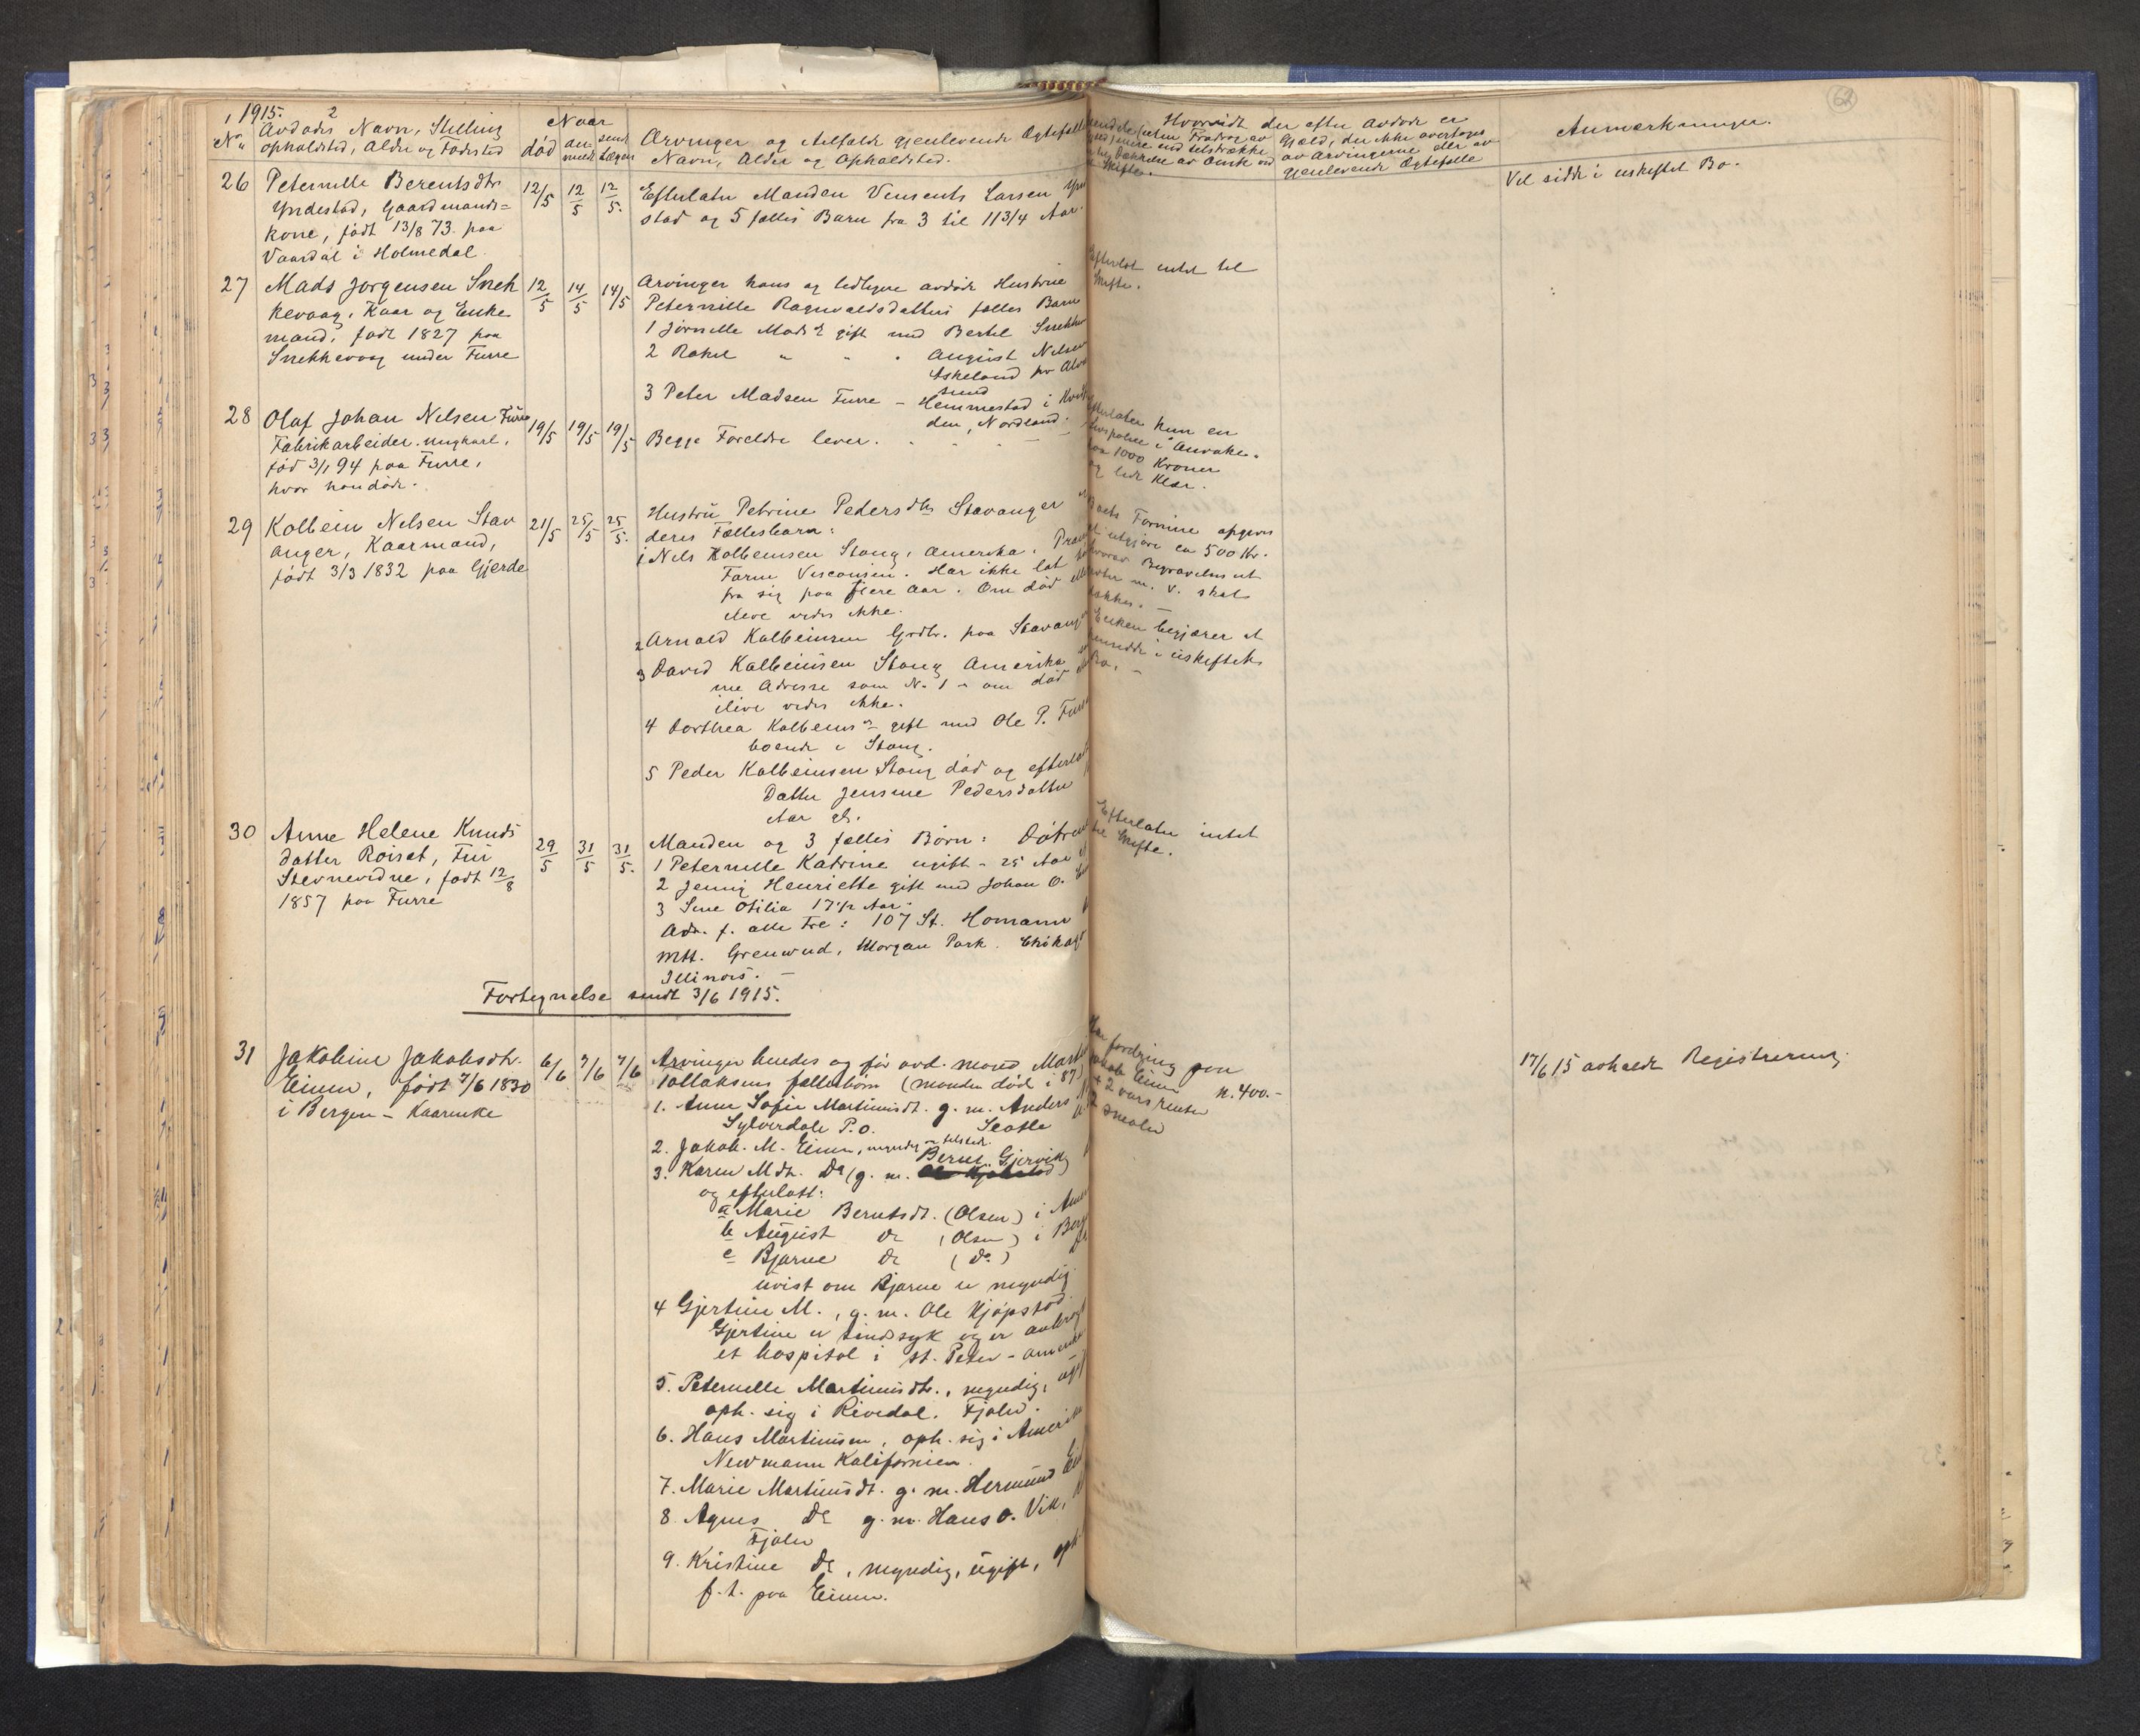 1915. 2
No
Avdødes Navn, Stilling
opholdsted, Alder og Fødested
Naar
død
an-
meldt
sendt
Arvinger og tilfælde gjenlevende Ægtefælle
Navn, Alder og Opholdsted.
Hvorvidt der efter avdøde er
Gjæld, der ikke overtages
av Arvingerne eller av
gjenlevende Ægtefælle
Anmerkninger.
62
26 Peternelle Berentsdtr
Yndestad, Gaardmands-
kone, født 13/8 73. paa
Vaardal i Holmedal
12/5 12/5 12/5.
Efterlater Manden Vensents Larsen
stad og 5 fælles Barn fra 3 til 11 3/4 Aar.
Vil sidde i uskiftet Bo.
27 Mads Jørgensen Snek
kevaag, Kaar og Enke
mand, født 1827 paa
Snekkevaag under Furre
12/5 14/5 14/5
Arvinger hans og tidligere avdøde Hustrue
Peternille Ragnvaldsdatters fælles Barn
1 Jørnelle Madsdr gift med Bertel
2 Rakel " " " August Nelsen
Askeland pr
sund
3 Peter Madsen Furre - Hemmestad i
den, Nordland.
Efterlot intet til
Skifte.
28 Olaf Johan Nelsen Furre
Fabrikarbeider. ungkarl,
fød 3/1 94 paa Furre,
hvor han døde.
19/5 19/5 19/5
Begge Foreldre lever.
kun en
i Amrika.
1000 Kroner
og lidt Klær.
29 Kolbein Nelsen Stav
anger, Kaarmand,
født 3/3 1832 paa Gjerde
21/5 25/5 25/5.
Hustru Petrine Pedersdtr Stavanger
deres Fællesbarn:
1 Nels Kolbeinsen Stang, Amerika.
Farm, Visconsin. Har ikke lat
fra sig paa flere Aar. Om død
ileve vides ikke.
2 Arnold Kolbeinsen Grdbr. paa
3 David Kolbeinsen Stang Amerika
me Adresse som No 1 - om død
ilive vides ikke.
4 Dorthea Kolbeinsdr gift med Ole P.
boende i Stang.
5 Peder Kolbeinsen Stang død og
Datter Jensine Pedersdatter
Aar gl.
Boets Formue opgives
at utgjøre ca 500 Kr.
hvorav Begravelsesut
m. v. skal
Enken begjærer at
i uskiftet
Bo.
30 Anne Helene Knuds
datter Roiset, Fru
Stevnevidne, født 12/8
1857 paa Furre
29/5 31/5 31/5.
Manden og 3 fælles Børn: Døtre
1 Peternelle Katrine ugift - 25 Aar
2 Jenny Henriette gift med Johan O.
3 Sine Otilia 17 1/2 Aar.
Adr. f. alle tre: 107 St. Homann
Mtt. Grenwud, Morgan Park.
Illinois. -
Efterlater intet
til Skifte.
Fortegnelse sendt 3/6 1915.
31 Jakobine Jakobsdtr.
Eimen, født 7/6 1830
i Bergen - Kaarenke
6/6 7/6 7/6
Arvinger hendes og før avd. mand
Tollaksens fællesbørn (manden død i 87)
1. Anne Sofie Martinusdt. g. m. Anders
Sylverdale P.O. Seatle
2. Jakob. M. Eimen, myndig - tilstede.
3. Karen Mdt. Do (g. m. Bernt Gjervik)
og efterlatt:
a Marie Berntsdt. (Olsen) i
b August Do (Olsen) i
c Bjarne Do (Do)
uvist om Bjarne er myndig
4 Gjertine M., g. m. Ole Kjøpstad
Gjertine er sindssyk og er
et hospital i st. Peter -
5. Peternelle Martinusdt., myndig,
oph. sig i Rivedal. Fjaler.
6. Hans Martinusen, oph. sig i Amerika
Newmann Kalifornien.
7. Marie Martinusdt. g. m. Hermund
8. Agnes Do g. m. Hans O. Vik,
Fjaler
9. Kristine Do, myndig, ugift,
f. t. paa Eimen.
fordring paa
Jakob Eimen
+ 2 aars renter
k. 400.-
17/6 15 avholdt Registrering